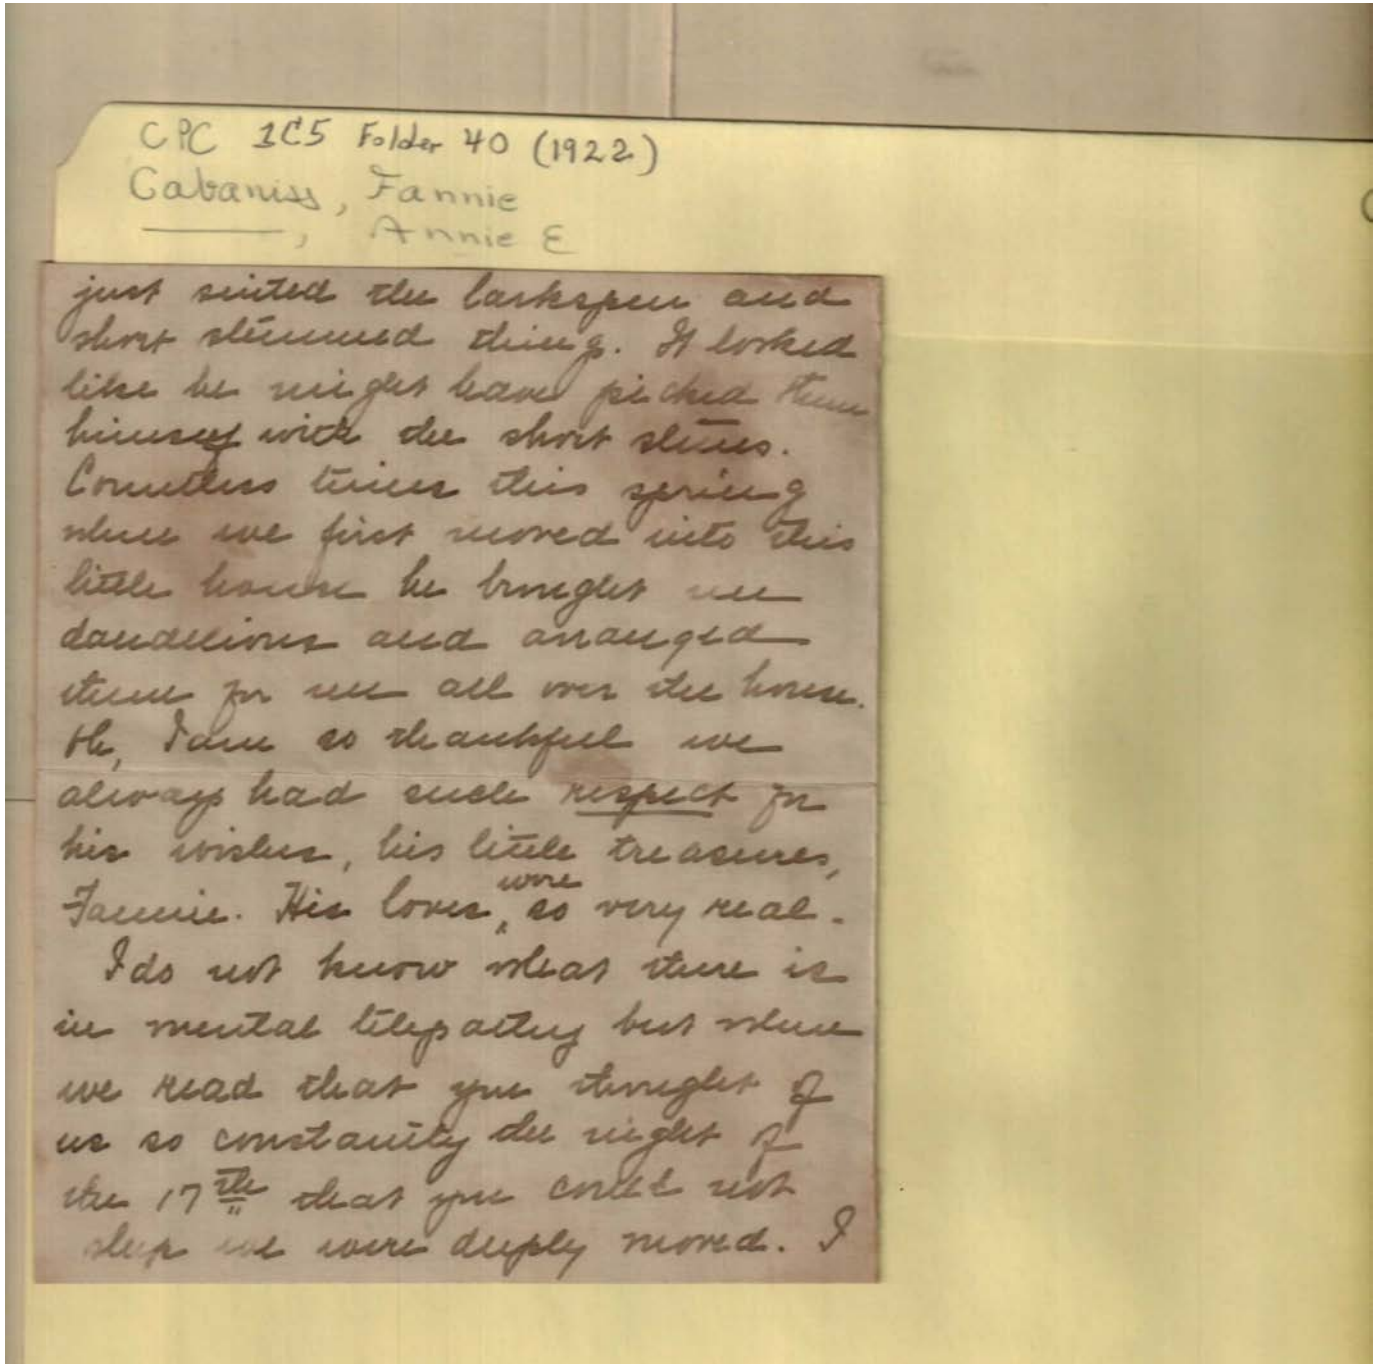 CPC 1C5 Folder 40 (1922)
Cabaniss, Fannie
———, Annie E
just suited the larkspur and
short stemmed things. It looked
like he might have picked them
himself with the short stems.
Countless times this spring
when we first moved into this
little house he brought me
dandelions and arranged
them for me all over the house.
Oh, I am so thankful we
always had such respect for
his wishes, his little treasures,
Fannie. His loves were so very real.
I do not know what there is
in mental telepathy but when
we read that you thought of
us so constantly the night of
the 17th that you could not
sleep we were deeply moved. I